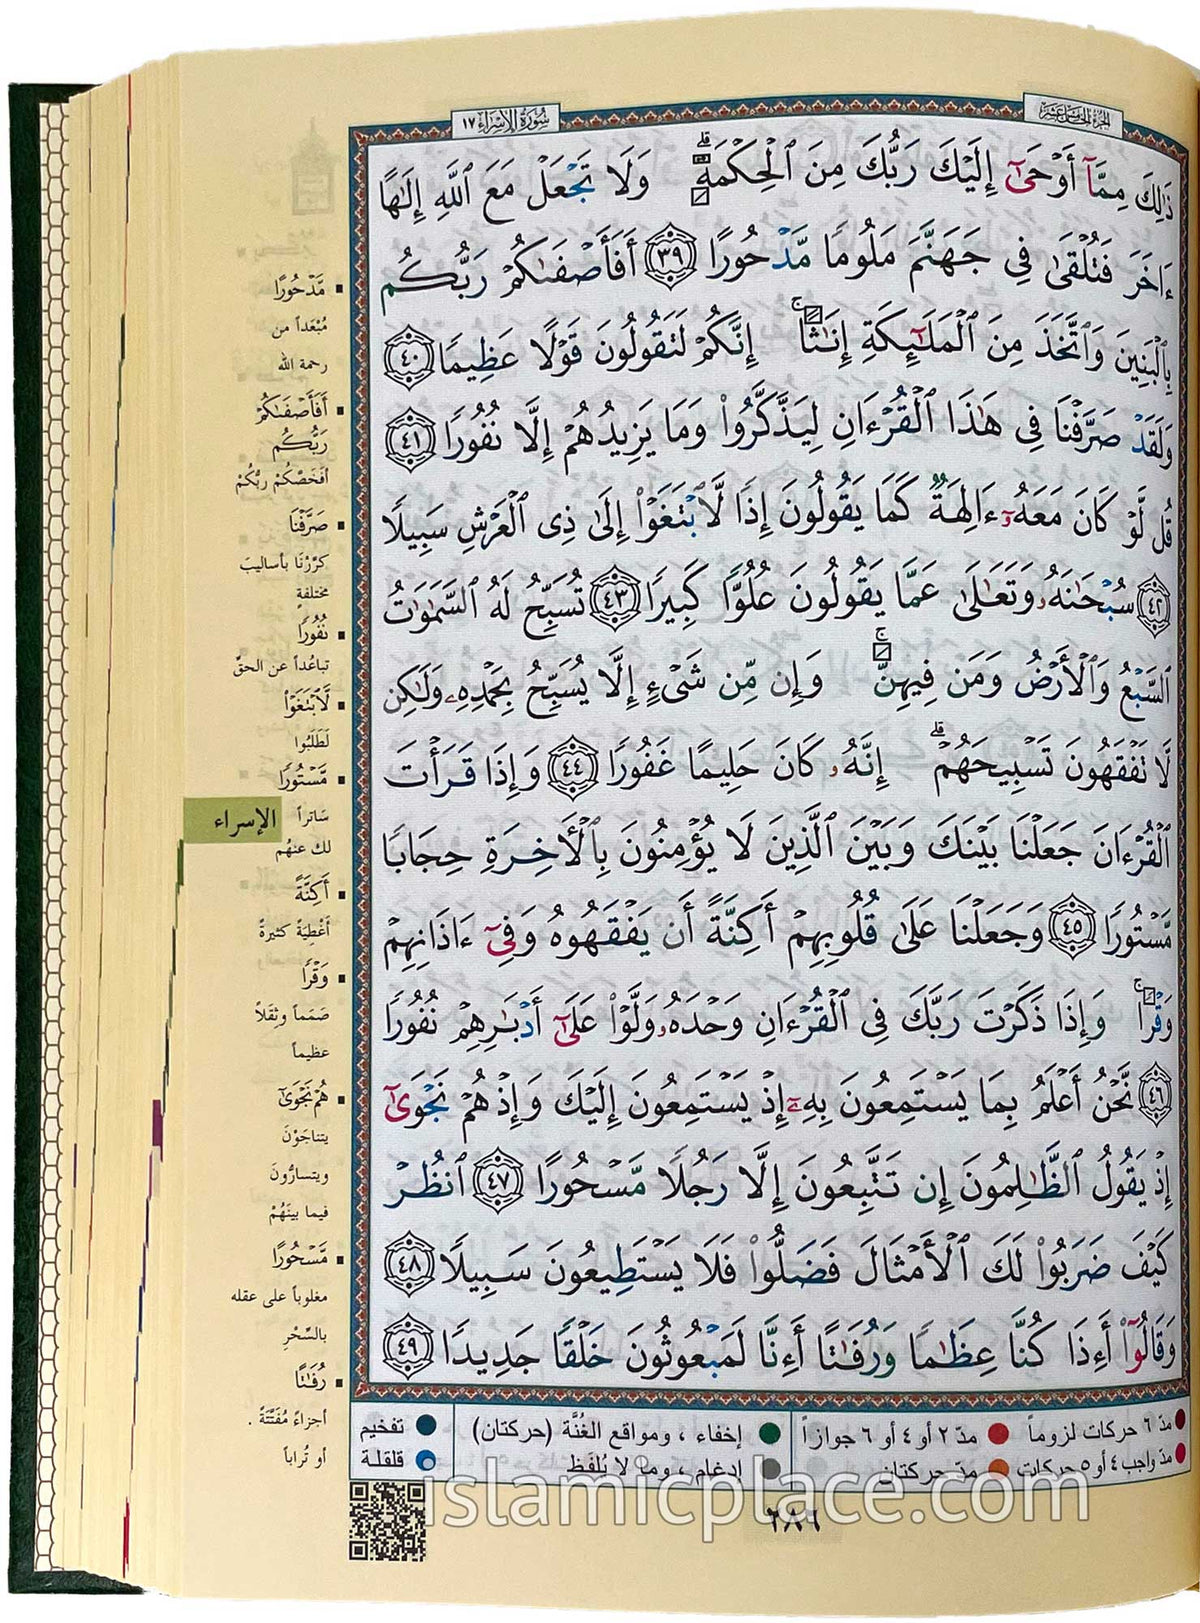 الجزء الخامس عشر
سورة الإسراء ١٧
ذَٰلِكَ مِمَّآ أَوْحَىٰٓ إِلَيْكَ رَبُّكَ مِنَ ٱلْحِكْمَةِۗ وَلَا تَجْعَلْ مَعَ ٱللَّهِ إِلَٰهًا
ءَاخَرَ فَتُلْقَىٰ فِى جَهَنَّمَ مَلُومًا مَّدْحُورًا ٣٩ أَفَأَصْفَىٰكُمْ رَبُّكُم
بِٱلْبَنِينَ وَٱتَّخَذَ مِنَ ٱلْمَلَٰٓئِكَةِ إِنَٰثًاۚ إِنَّكُمْ لَتَقُولُونَ قَوْلًا عَظِيمًا ٤٠
وَلَقَدْ صَرَّفْنَا فِى هَٰذَا ٱلْقُرْءَانِ لِيَذَّكَّرُوا۟ وَمَا يَزِيدُهُمْ إِلَّا نُفُورًا ٤١
قُل لَّوْ كَانَ مَعَهُۥٓ ءَالِهَةٌ كَمَا يَقُولُونَ إِذًا لَّٱبْتَغَوْا۟ إِلَىٰ ذِى ٱلْعَرْشِ سَبِيلًا
٤٢ سُبْحَٰنَهُۥ وَتَعَٰلَىٰ عَمَّا يَقُولُونَ عُلُوًّا كَبِيرًا ٤٣ تُسَبِّحُ لَهُ ٱلسَّمَٰوَٰتُ
ٱلسَّبْعُ وَٱلْأَرْضُ وَمَن فِيهِنَّۚ وَإِن مِّن شَىْءٍ إِلَّا يُسَبِّحُ بِحَمْدِهِۦ وَلَٰكِن
لَّا تَفْقَهُونَ تَسْبِيحَهُمْۗ إِنَّهُۥ كَانَ حَلِيمًا غَفُورًا ٤٤ وَإِذَا قَرَأْتَ
ٱلْقُرْءَانَ جَعَلْنَا بَيْنَكَ وَبَيْنَ ٱلَّذِينَ لَا يُؤْمِنُونَ بِٱلْأَخِرَةِ حِجَابًا
مَّسْتُورًا ٤٥ وَجَعَلْنَا عَلَىٰ قُلُوبِهِمْ أَكِنَّةً أَن يَفْقَهُوهُ وَفِىٓ ءَاذَانِهِمْ
وَقْرًاۚ وَإِذَا ذَكَرْتَ رَبَّكَ فِى ٱلْقُرْءَانِ وَحْدَهُۥ وَلَّوْا۟ عَلَىٰٓ أَدْبَٰرِهِمْ نُفُورًا
٤٦ نَّحْنُ أَعْلَمُ بِمَا يَسْتَمِعُونَ بِهِۦٓ إِذْ يَسْتَمِعُونَ إِلَيْكَ وَإِذْ هُمْ نَجْوَىٰٓ
إِذْ يَقُولُ ٱلظَّٰلِمُونَ إِن تَتَّبِعُونَ إِلَّا رَجُلًا مَّسْحُورًا ٤٧ ٱنظُرْ
كَيْفَ ضَرَبُوا۟ لَكَ ٱلْأَمْثَالَ فَضَلُّوا۟ فَلَا يَسْتَطِيعُونَ سَبِيلًا ٤٨
وَقَالُوٓا۟ أَءِذَا كُنَّا عِظَٰمًا وَرُفَٰتًا أَءِنَّا لَمَبْعُوثُونَ خَلْقًا جَدِيدًا ٤٩
مَّدْحُورًا
مُبْعَداً من
رحمة الله
أَفَأَصْفَىٰكُمْ
رَبُّكُم
أَفَخَصَّكُمْ ربُّكُمْ
صَرَّفْنَا
كرَّرْنَا بأساليبَ
مختلفةٍ
نُفُورًا
تباعُداً عن الحقّ
لَّٱبْتَغَوْا۟
لَطَلَبُوا
مَّسْتُورًا
سَاتراً
لك عنهُم
الإسراء
أَكِنَّةً
أغْطِيَة كثيرةً
وَقْرًا
صَمَماً وثِقَلاً
عظيماً
هُمْ نَجْوَىٰٓ
يتناجَوْنَ
ويتسارُّون
فيما بينَهُمْ
مَّسْحُورًا
مغلوباً على عقله
بالسِّحْرِ
رُفَٰتًا
أجزاءً مُفَتَّتَةً .
أو تُراباً
مدّ ٦ حركات لزوماً مدّ ٢ أو ٤ أو ٦ جوازاً إخفاء ، ومواقع الغُنَّة (حركتان) تفخيم
مدّ واجب ٤ أو ٥ حركات مدّ حركتان إدغام ، وما لا يُلفَظ قلقلة
islamicplace.com
٢٨٦